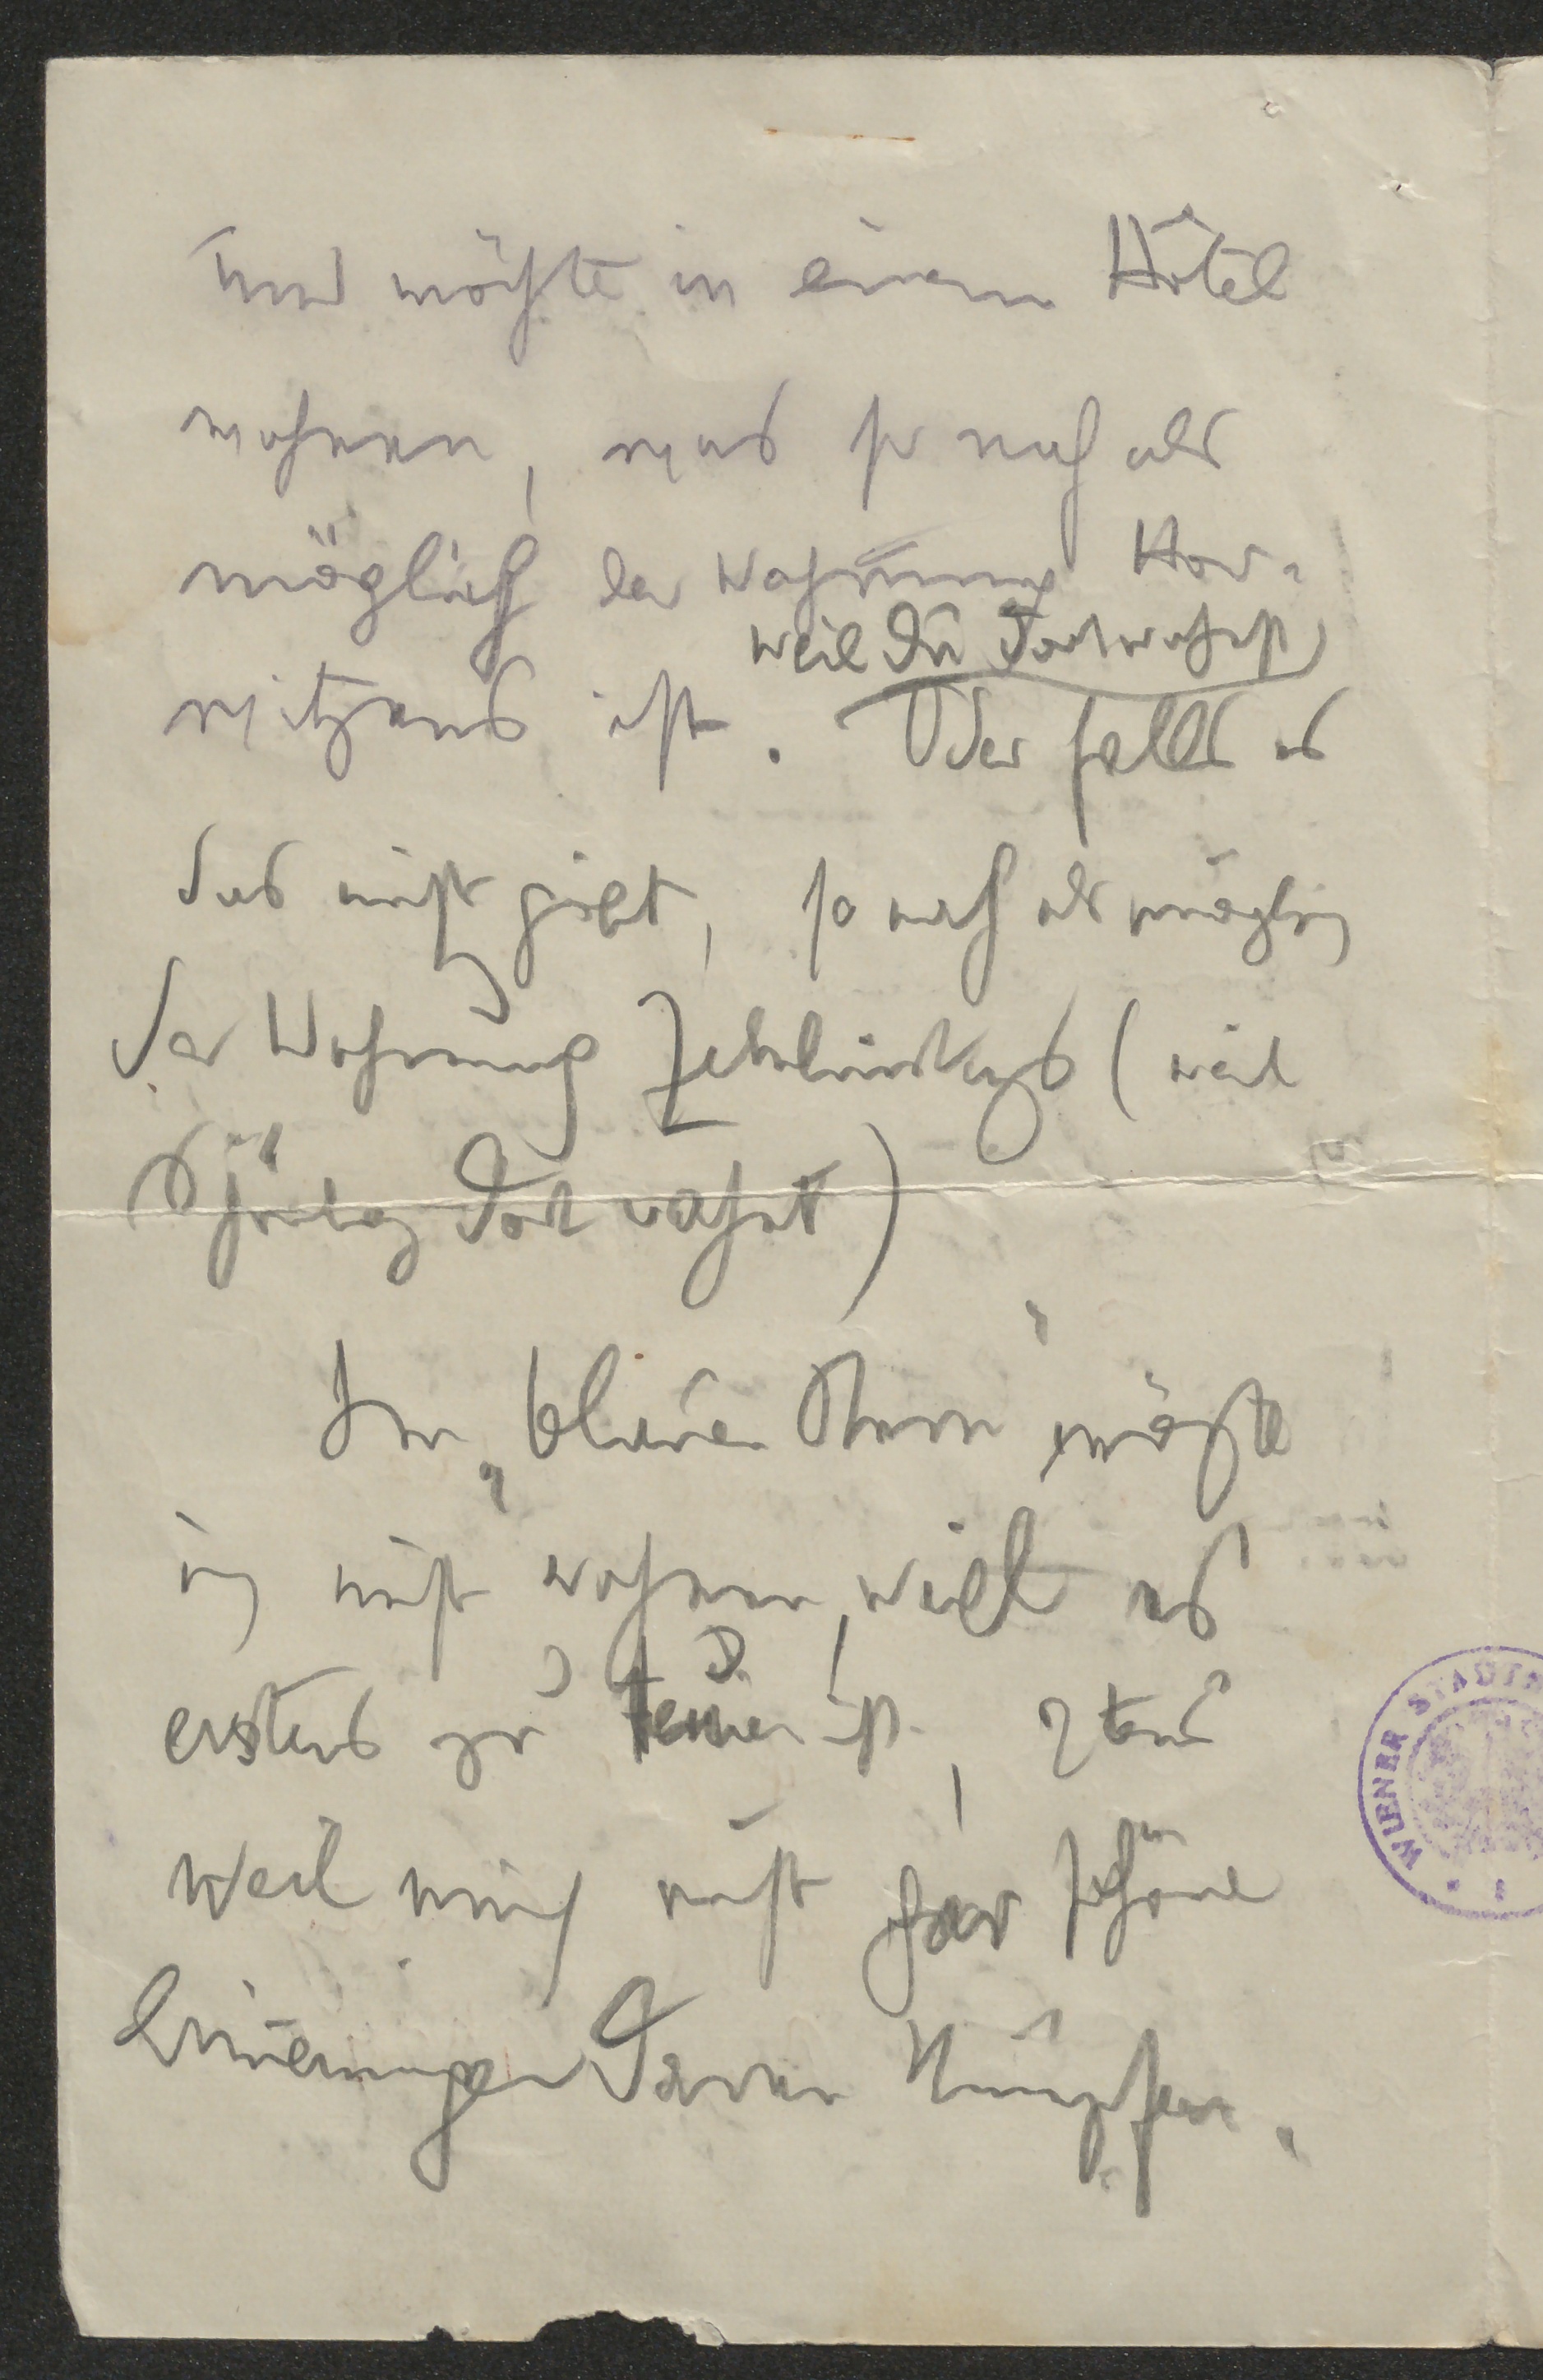 und möchte in einem Hôtel
wohnen, was so nah als
möglich der Wohnung Hor-
weil Du dort wohnst
witzens ist. Oder falls es
das nicht gibt, so nah als möglich
der Wohnung (weil
dort wohnt)
Im „blauen Stern" möchte
ich nicht wohnen, weil es
erstens zu teuer ist, 2tens
weil mich nicht gar schöne
Erinerungen daran knüpfen.
WIENER STADT